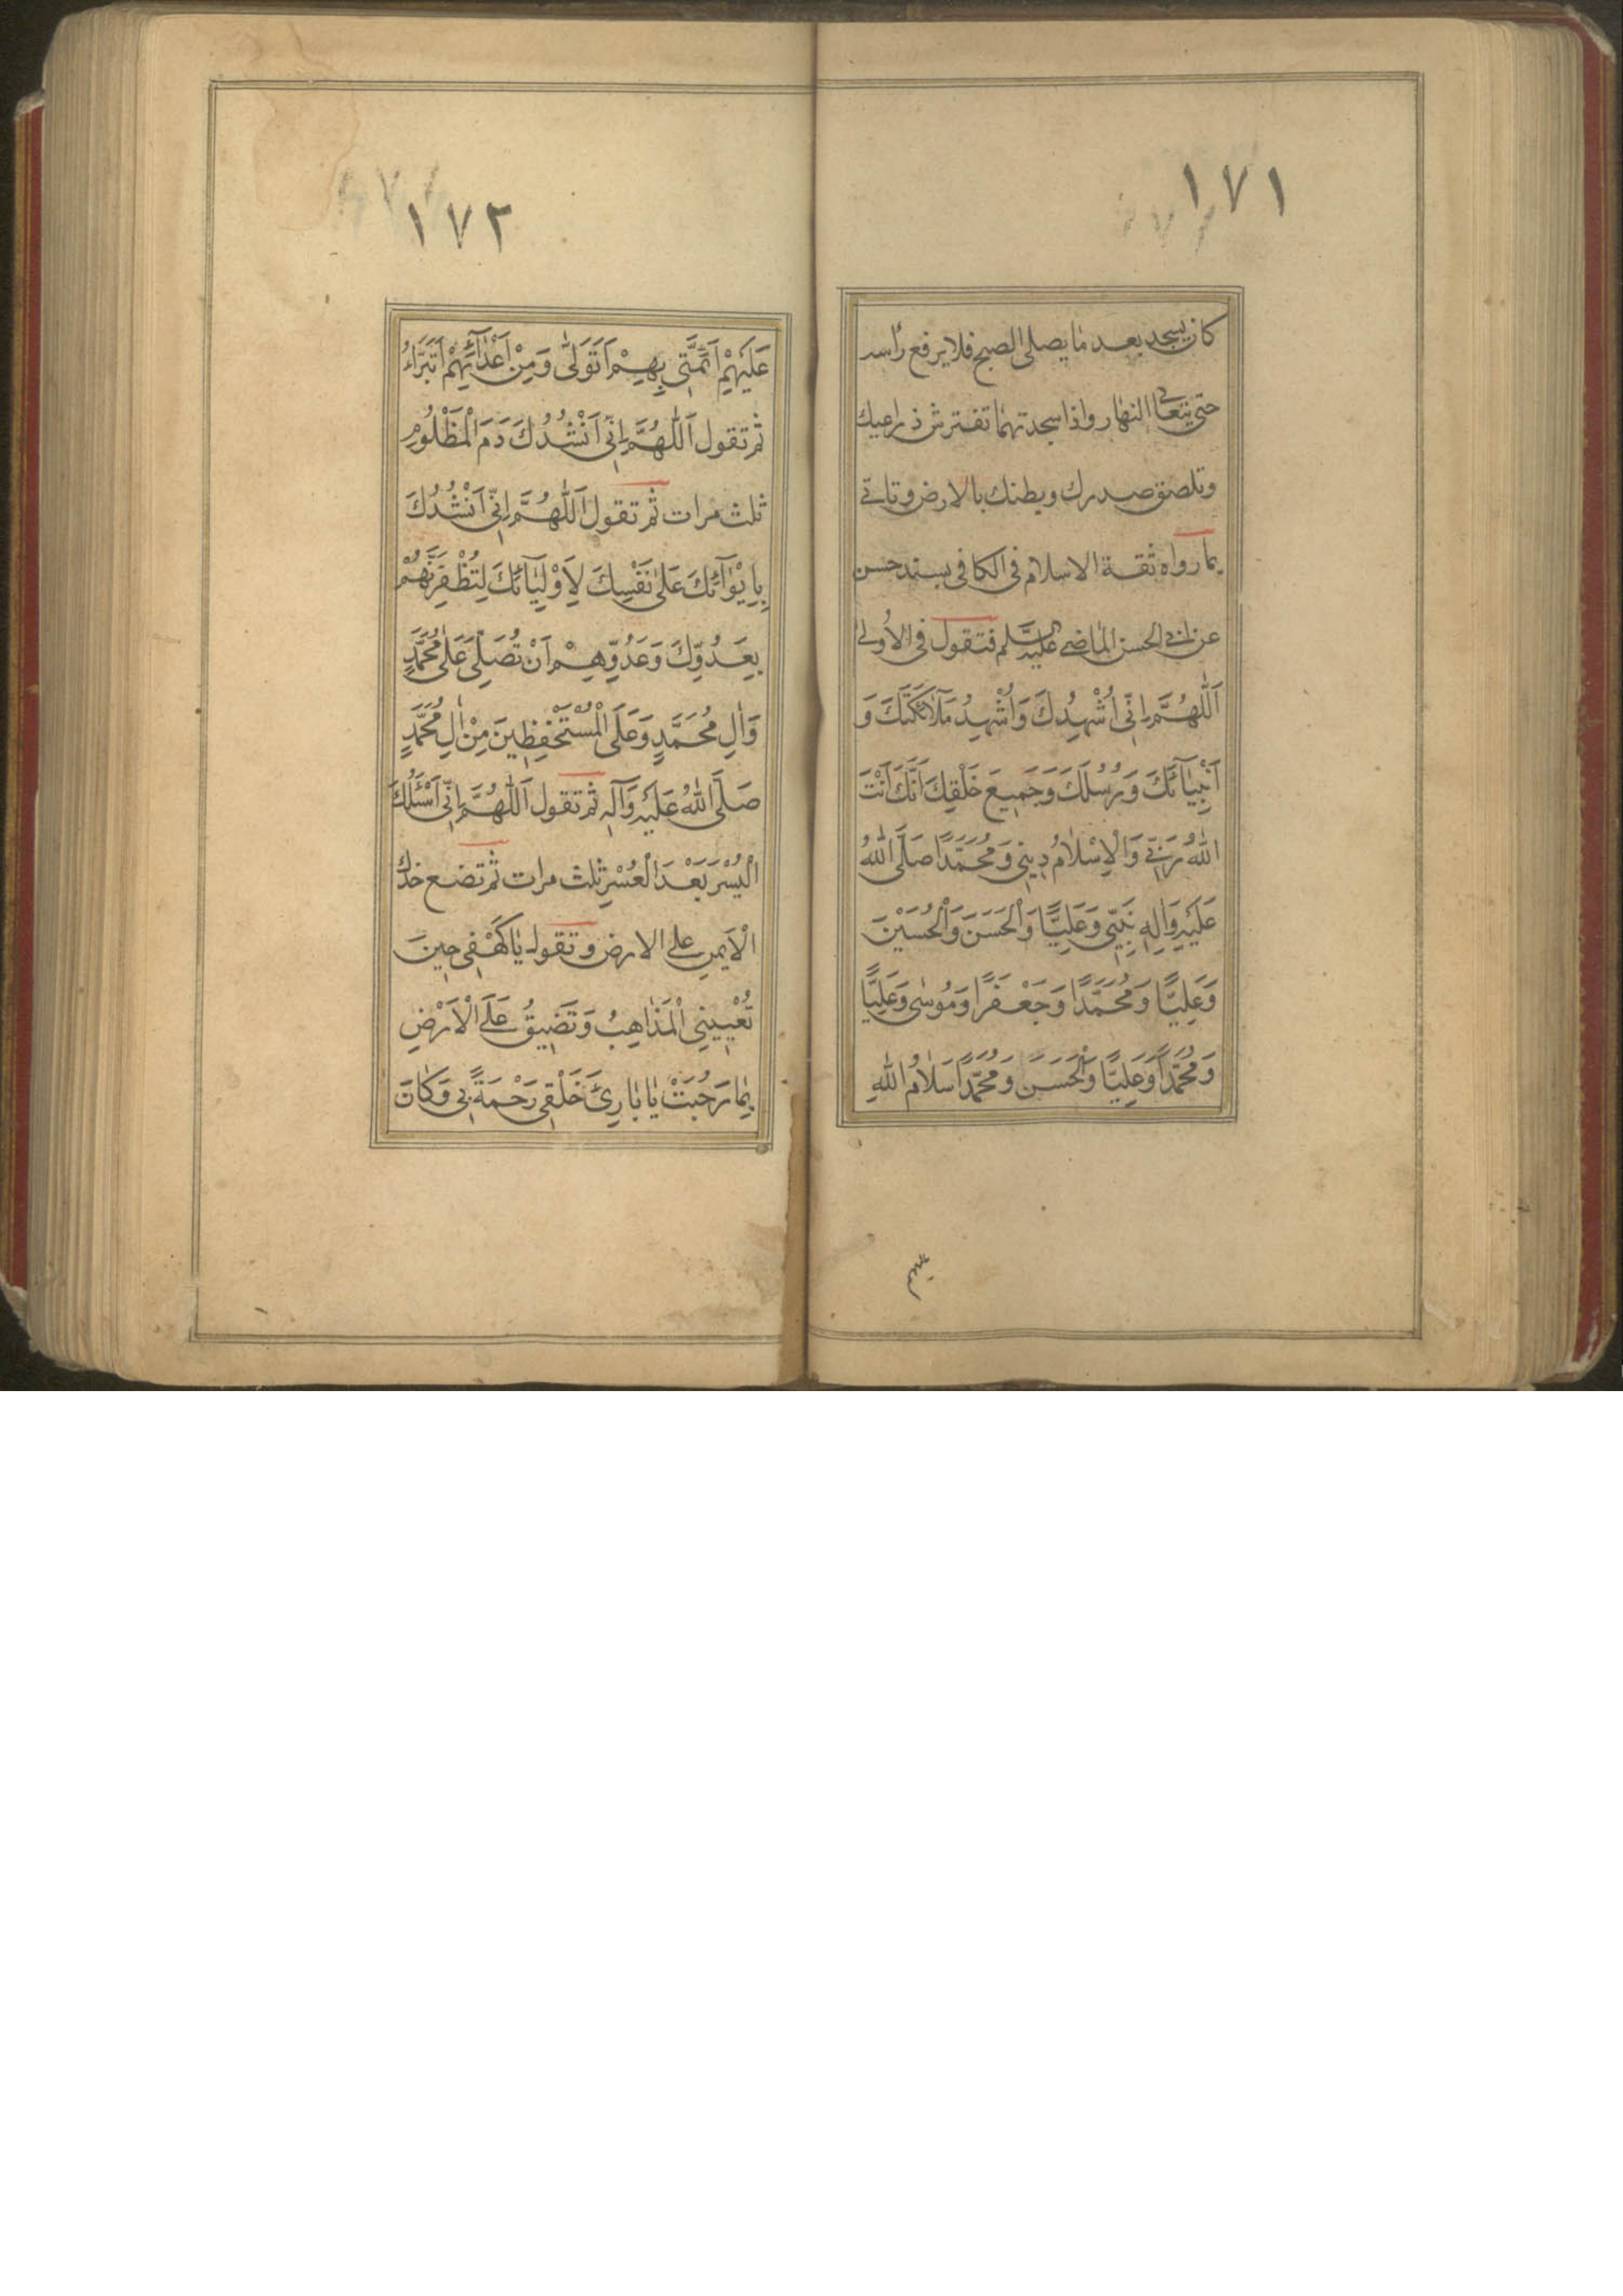 ١٧١
كان يسجد بعد ما يصلى الصبح فلا يرفع رأسه
حتى يتعالى النهار واذا سجدتهما تفترش ذراعيك
وتلصق صدرك وبطنك بالارض وتاتى
بما رواه ثقة الاسلام فى الكافى بسند حسن
عن ابى الحسن الماضى عليه السلم فتقول فى الأولى
اَللّٰهُمَّ اِنّى اُشْهِدُكَ وَاُشْهِدُ مَلَآئِكَتَكَ وَ
اَنْبِيَآئَكَ وَرُسُلَكَ وَجَمِيعَ خَلْقِكَ اَنَّكَ اَنْتَ
اللّٰهُ رَبّى وَالْاِسْلَامُ دِينِى وَمُحَمَّدًا صَلَّى اللّٰهُ
عَلَيْهِ وَاٰلِهِ نَبِيّى وَعَلِيًّا وَالْحَسَنَ وَالْحُسَيْنَ
وَعَلِيًّا وَمُحَمَّدًا وَجَعْفَرًا وَمُوسٰى وَعَلِيًّا
وَمُحَمَّدًا وَعَلِيًّا وَالْحَسَنَ وَمُحَمَّدًا سَلَامُ اللّٰهِ
١٧٢
عَلَيْهِمْ اَئِمَّتِى بِهِمْ اَتَوَلّٰى وَمِنْ اَعْدَآئِهِمْ اَتَبَرَّاءُ
ثم تقول اَللّٰهُمَّ اِنّى اَنْشُدُكَ دَمَ الْمَظْلُومِ
ثلث مرات ثم تقول اَللّٰهُمَّ اِنّى اَنْشُدُكَ
بِاِيْوَآئِكَ عَلٰى نَفْسِكَ لِاَوْلِيَآئِكَ لِتُظْفِرَنَّهُمْ
بِعَدُوِّكَ وَعَدُوِّهِمْ اَنْ تُصَلِّىَ عَلٰى مُحَمَّدٍ
وَاٰلِ مُحَمَّدٍ وَعَلَى الْمُسْتَحْفِظِينَ مِنْ اٰلِ مُحَمَّدٍ
صَلَّى اللّٰهُ عَلَيْهِ وَآلِهِ ثم تقول اَللّٰهُمَّ اِنّى اَسْئَلُكَ
الْيُسْرَ بَعْدَ الْعُسْرِ ثلث مرات ثم تضع خدك
الْاَيمنِ على الارض وتقول يَا كَهْفِى حِينَ
تُعْيِينِى الْمَذَاهِبُ وَتَضِيقُ عَلَىَّ الْاَرْضُ
بِمَا رَحُبَتْ يَا بَارِئَ خَلْقِى رَحْمَةً بِى وَكَانَ